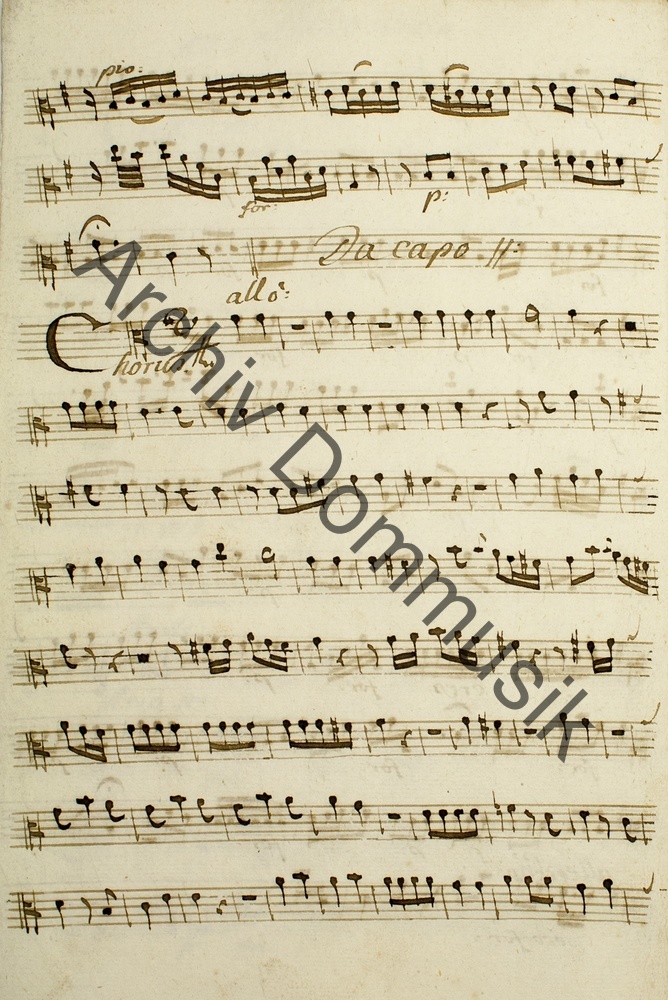 pio:
for: p:
Da capo
allo:
Chorus.
Archiv Dommusik